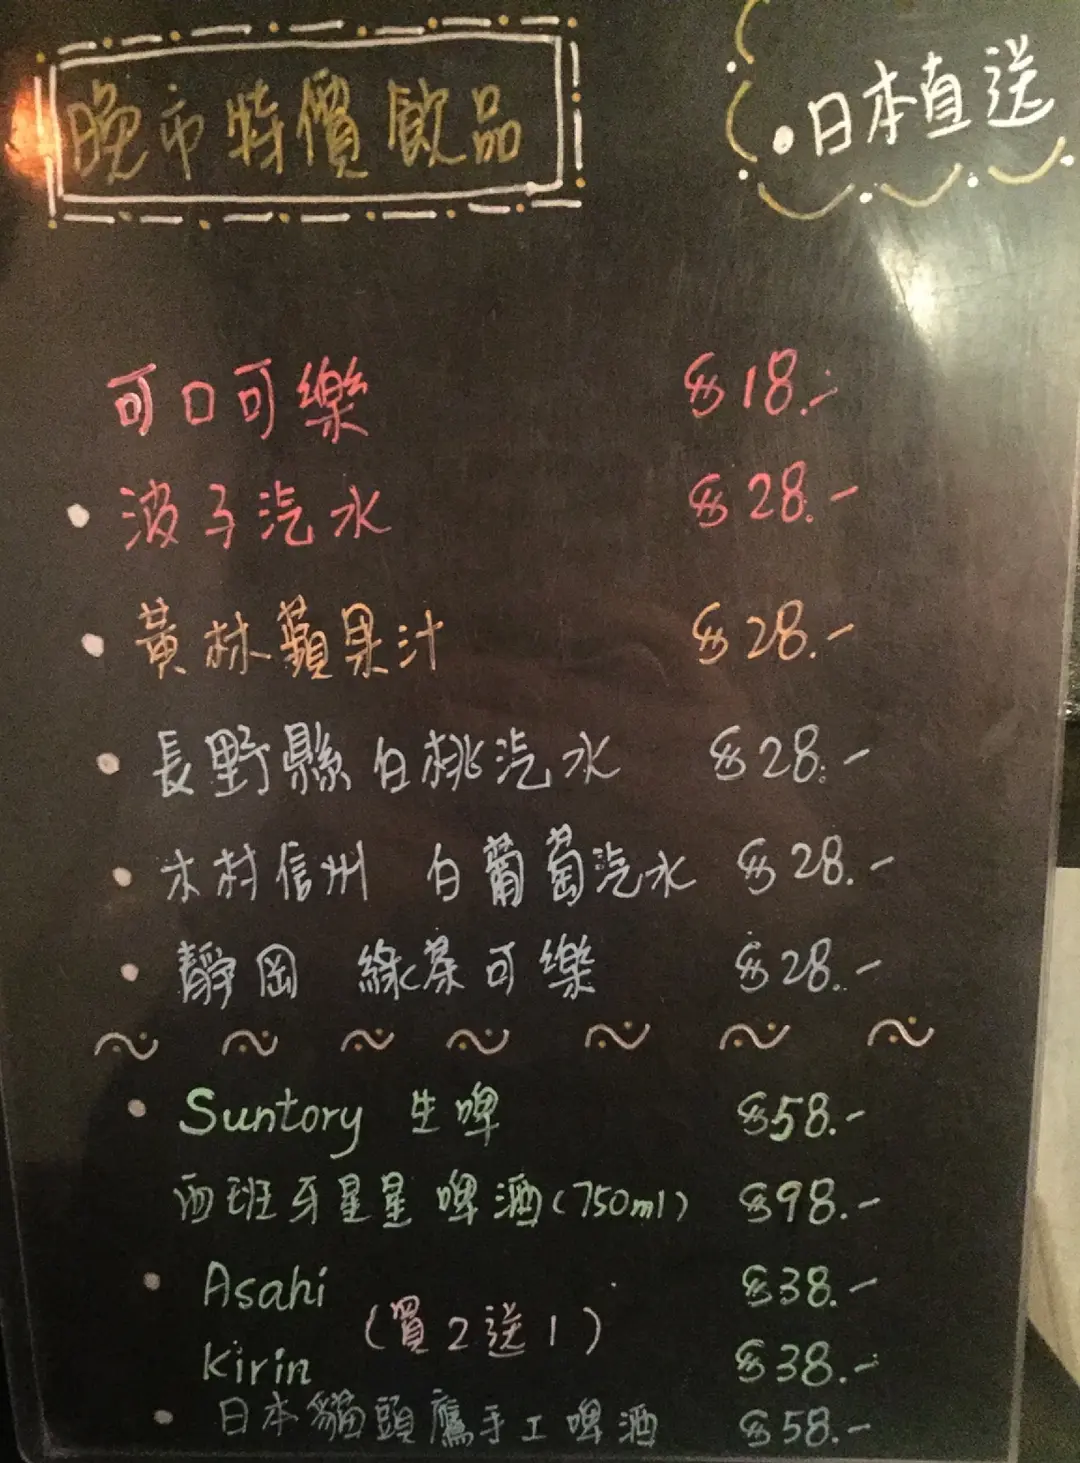 晚市特價飲品
•日本直送
可口可樂 $18.-
• 波子汽水 $28.-
• 黃林蘋果汁 $28.-
• 長野縣白桃汽水 $28.-
• 木村信州 白葡萄汽水 $28.-
• 靜岡 綠茶可樂 $28.-
• Suntory 生啤 $58.-
西班牙星星啤酒(750ml) $98.-
• Asahi $38.-
(買2送1)
Kirin $38.-
• 日本貓頭鷹手工啤酒 $58.-